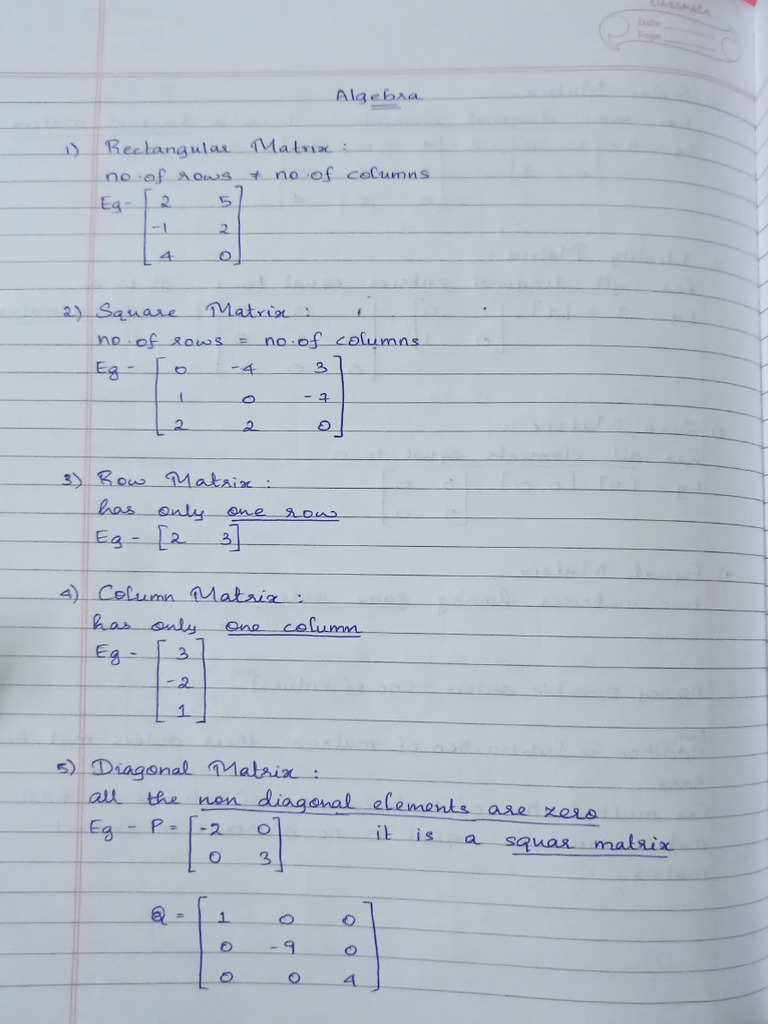 CLASSMATE
Date
Page
Algebra
1) Rectangular Matrix :
no. of rows ≠ no. of columns
Eg- [ 2 5
-1 2
4 0 ]
2) Square Matrix :
no. of rows = no. of columns
Eg - [ 0 -4 3
1 0 -7
2 2 0 ]
3) Row Matrix :
has only one row
Eg - [2 3]
4) Column Matrix :
has only one column
Eg - [ 3
-2
1 ]
5) Diagonal Matrix :
all the non diagonal elements are zero
Eg - P = [ -2 0 it is a squar matrix
0 3 ]
Q = [ 1 0 0
0 -9 0
0 0 4 ]